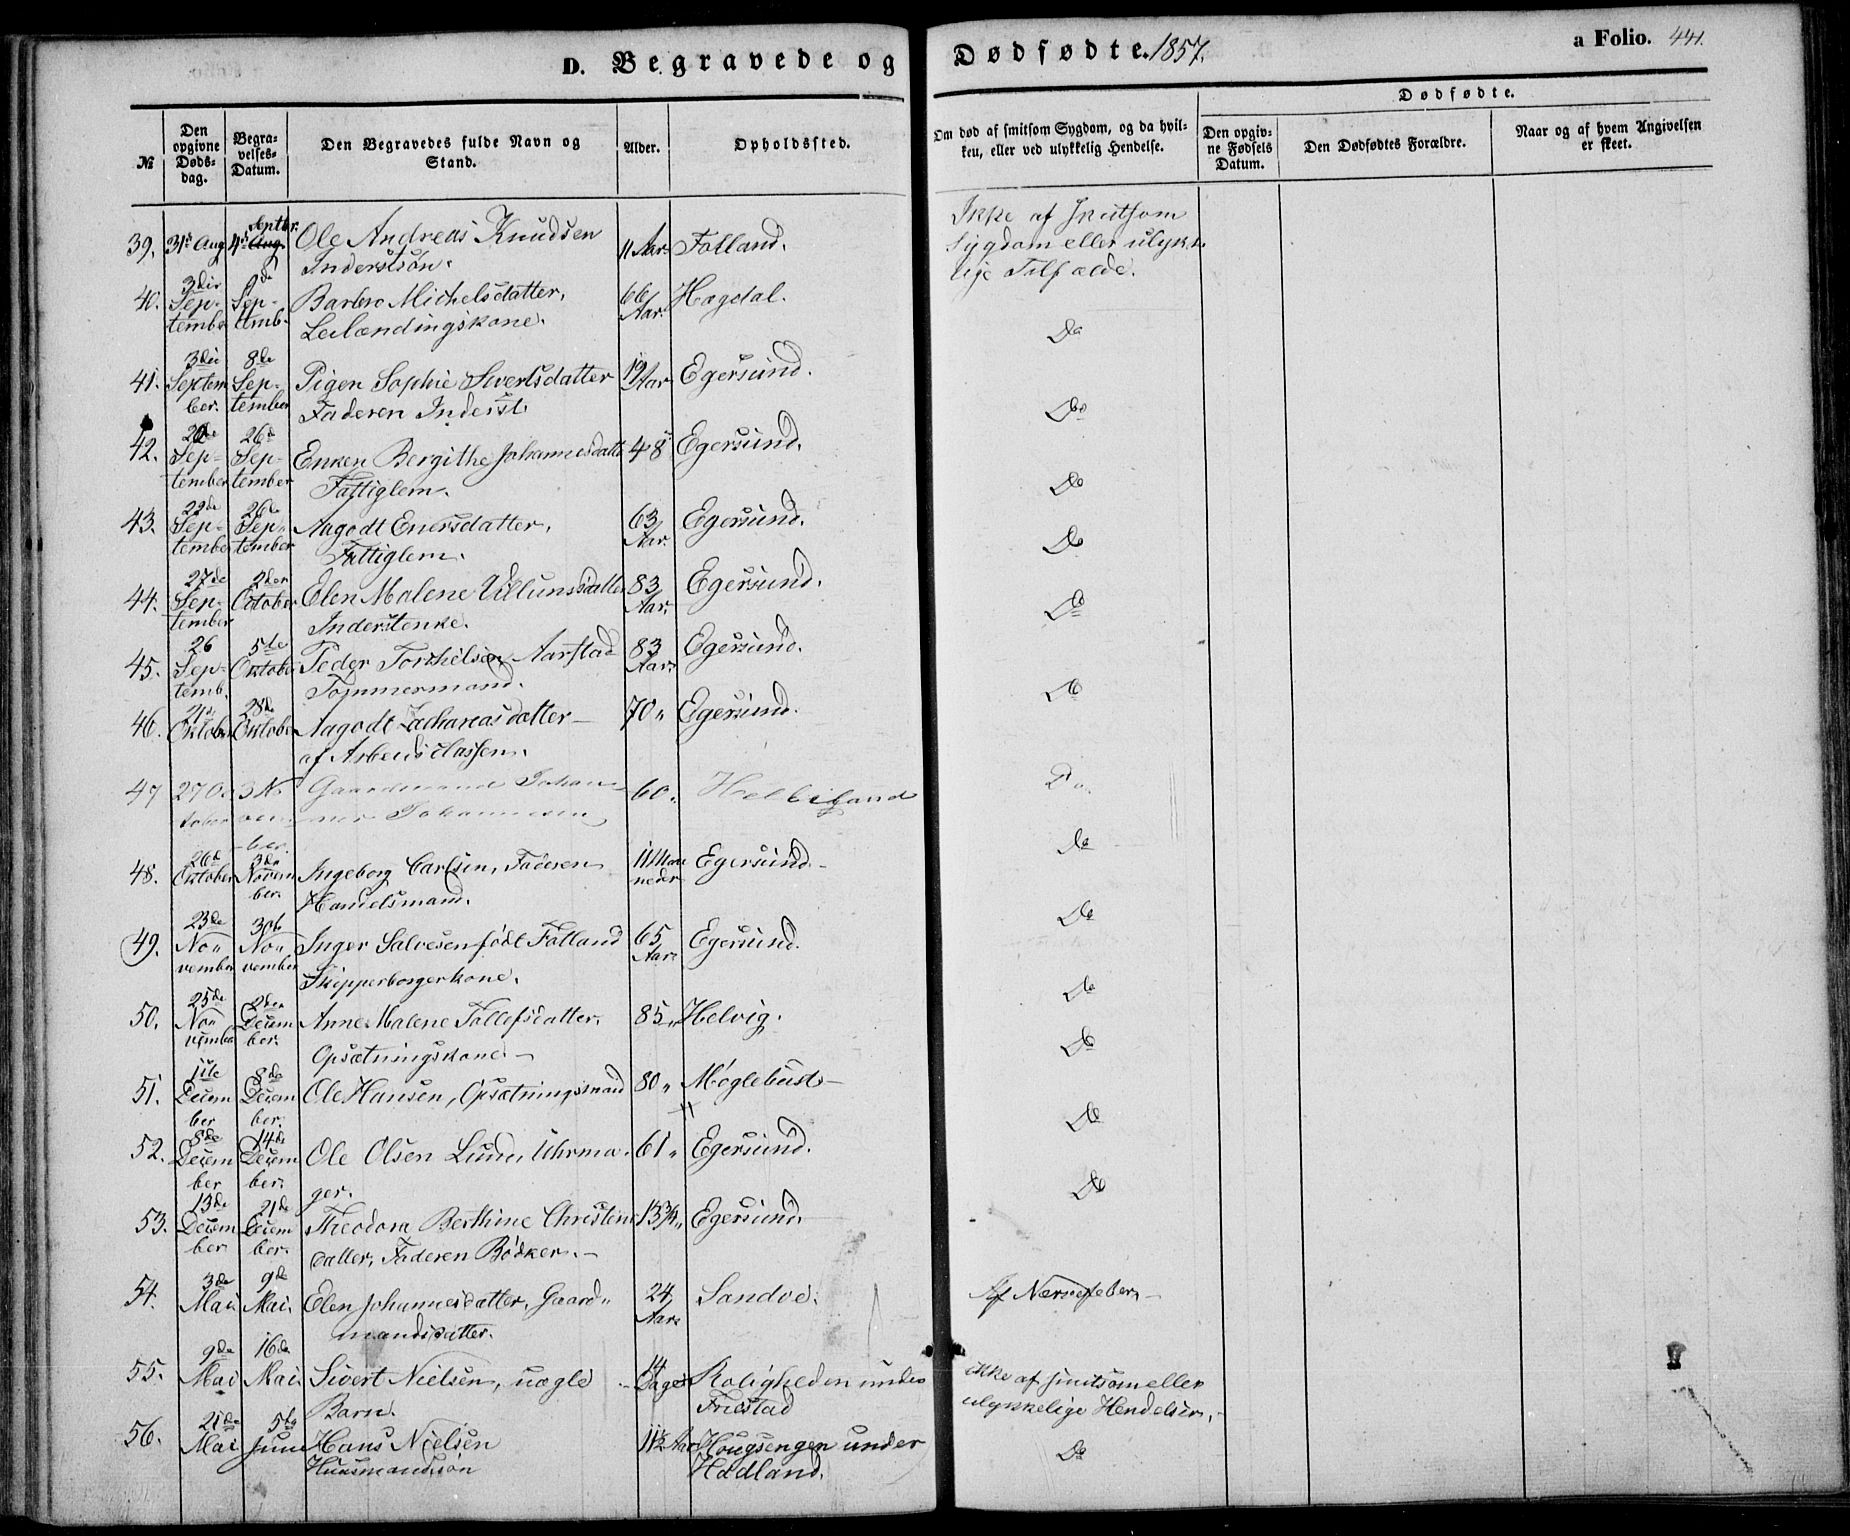 D. Begravede og Dødfødte. 1857. a Folio. 441.
№
Den opgivne Døds-dag.
Begra-velses-Datum.
Den Begravedes fulde Navn og Stand.
Alder.
Opholdsted.
Om død af smitsom Sygdom, og da hvil-ken, eller ved ulykkelig Hendelse.
Dødfødte.
Den opgiv-ne Fødsels Datum.
Den Dødfødtes Forældre.
Naar og af hvem Angivelsen er skeet.
39. 31te Aug 4de Septbr. Ole Andreas Knudsen 11 Aar Fotland. Ikke af smitsom
Inderstsøn. Sygdom eller ulykke-
lige Tilfælde.
40. 3die September 9de Septemb. Barbro Michelsdatter, 66 Aar. Hægdal. Do
Leilændingskone.
41. 3die September. 8de September Pigen Sophie Sivertsdatter 19 Aar Egersund. Do
Faderen Inderst.
42. 20de September 26de September Enken Bergithe Johannesdatt 48 Egersund. Do
Fattiglem.
43. 22de September 26de September Aagodt Enersdatter, 63 Aar. Egersund. Do
Fattiglem.
44. 27de September 2den October Elen Malene Villumsdatter 83 Aar Egersund. Do
Inderstenke.
45. 26 Septemb. 5te Oktober Peder Torkelsen Aarstad 83 Aar Egersund. Do
Tømmermand.
46. 21de Oktober 28de Oktober Aagodt Zachariasdatter 70 " Egersund.
af Arbeidsclassen.
47 27 October 3 November. Gaardmand Johan- 60. Do.
nes Johannesen
48. 26de Oktober 3die November. Ingeborg Carlsen, Faderen 11 Maaneder Egersund. Do
Handelsmand.
49. 23de November 30te November Inger Salvesen født Fotland 65 Aar Egersund. Do
Skipperborgerkone.
50. 25de November 2den December. Anne Malene Tollefsdatter. 85 " Helvig. Do
Opsætningskone.
51. 1ste December 8de December. Ole Hansen, Opsætningsmand 80 " Møglebust Do
52. 8de December 14de December. Ole Olsen Lund, Uhrma- 61 " Egersund. Do
ger.
53. 13de December. 21de December. Theodora Berthine Christine Egersund. Do
datter, Faderen Bødker.
54. 3de Mai. 9de Mai. Elen Johannesdatter, Gaard- 24 Aar Sandve. Af Nervefeber,
mandsdatter.
55. 9de Mai 16de Mai. Sivert Nielsen, uægte 14 Dage Roligheden under Ikke af smitsom eller
Barn. Friestad ulykkelige Hendelser,
56. 21de Mai 5te Juni Hans Nielsen 11½ Aar Hougsengen under Do
Huusmandssøn Hadland.